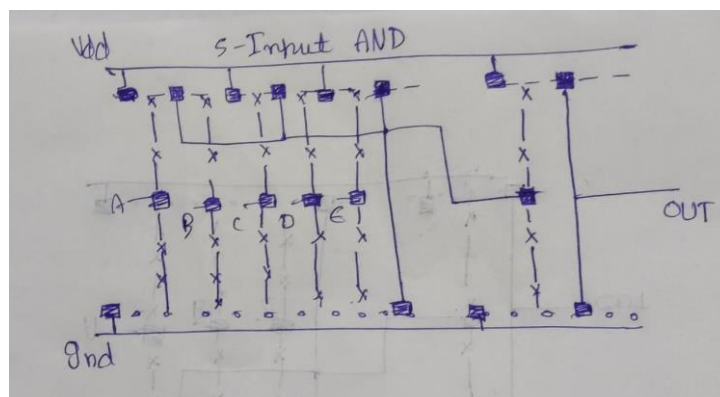 Vdd 5-Input AND
A
B
C
D
E
OUT
gnd